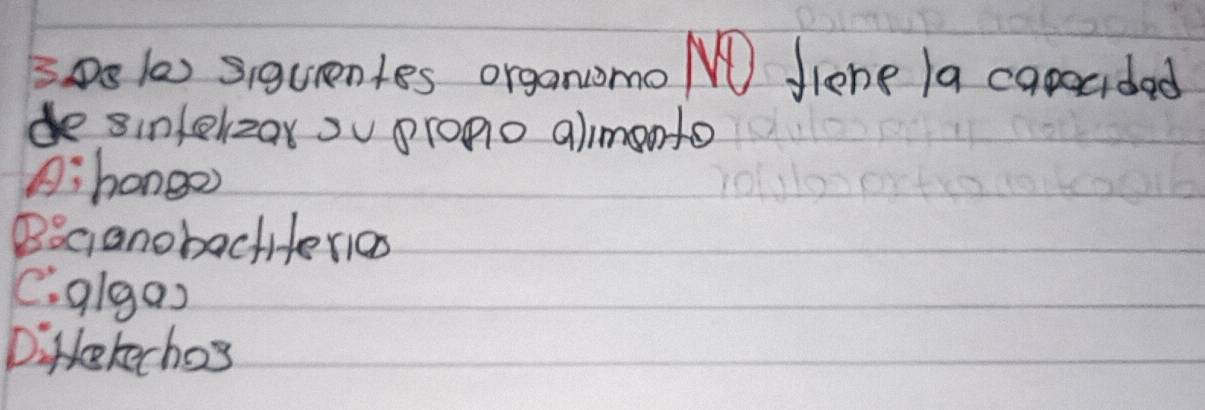 3. De los siguientes organismo NO tiene la capacidad
de sintetizar su propio alimento
A: hongos
B: cianobactiterias
C: algas
D: Helechos